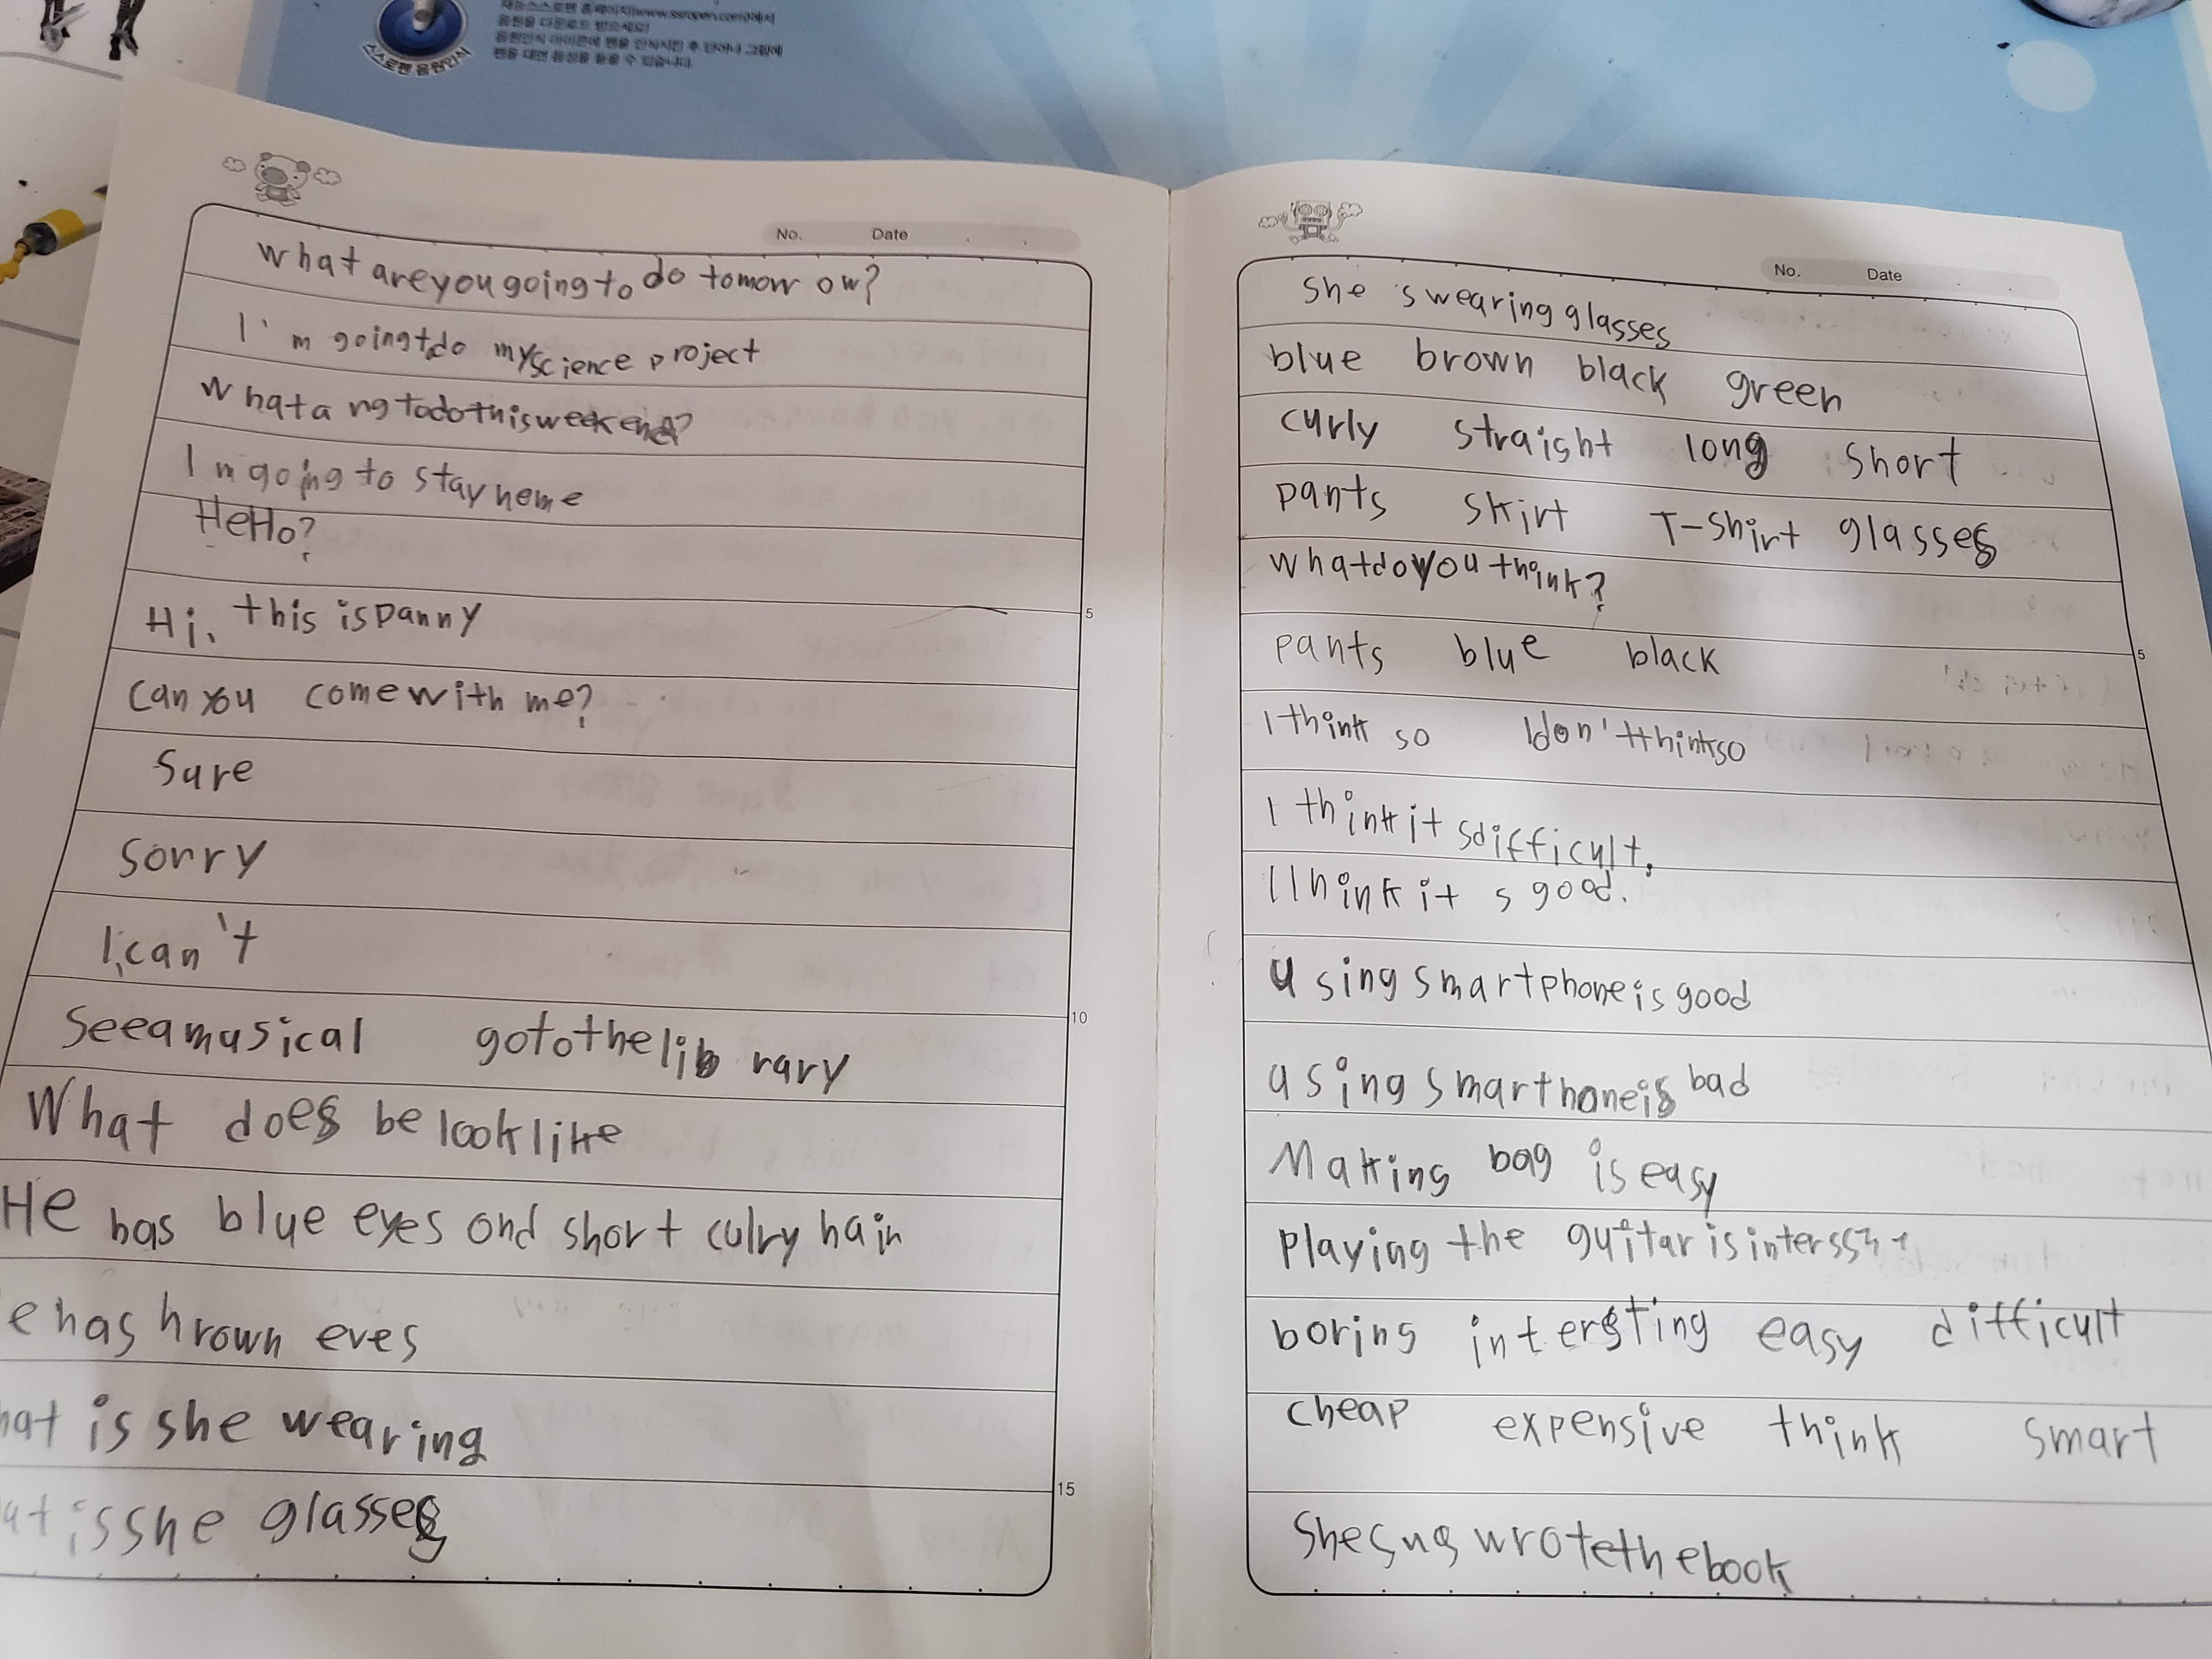 음원을 다운로드 받으세요!
음원인식 아이콘에 펜을 인식시킨 후 단어나 그림에
펜을 대면 음성을 들을 수 있습니다.
스스로펜 음원인식
No. Date
What are you going to do tomorr ow?
I'm going to do my science project
What a ng to do this weekend?
I m going to stay heme
Hello?
Hi, this is Danny
Can you come with me?
Sure
Sorry
I can't
See a musical go to the lib rary
What does be look like
He has blue eyes ond short culry hair
e has hrown eves
hat is she wearing
at is she glasses
5
10
15
No. Date
She s wearing glasses
blue brown black green
curly straight long short
pants skirt T-shirt glasses
What do you think?
pants blue black
I think so I don't think so
I think it s difficult.
I think it s good.
using smartphone is good
using smarthone is bad
Making bag is easy
playing the guitar is
boring intersting easy difficult
cheap expensive think smart
She wrote the book
5